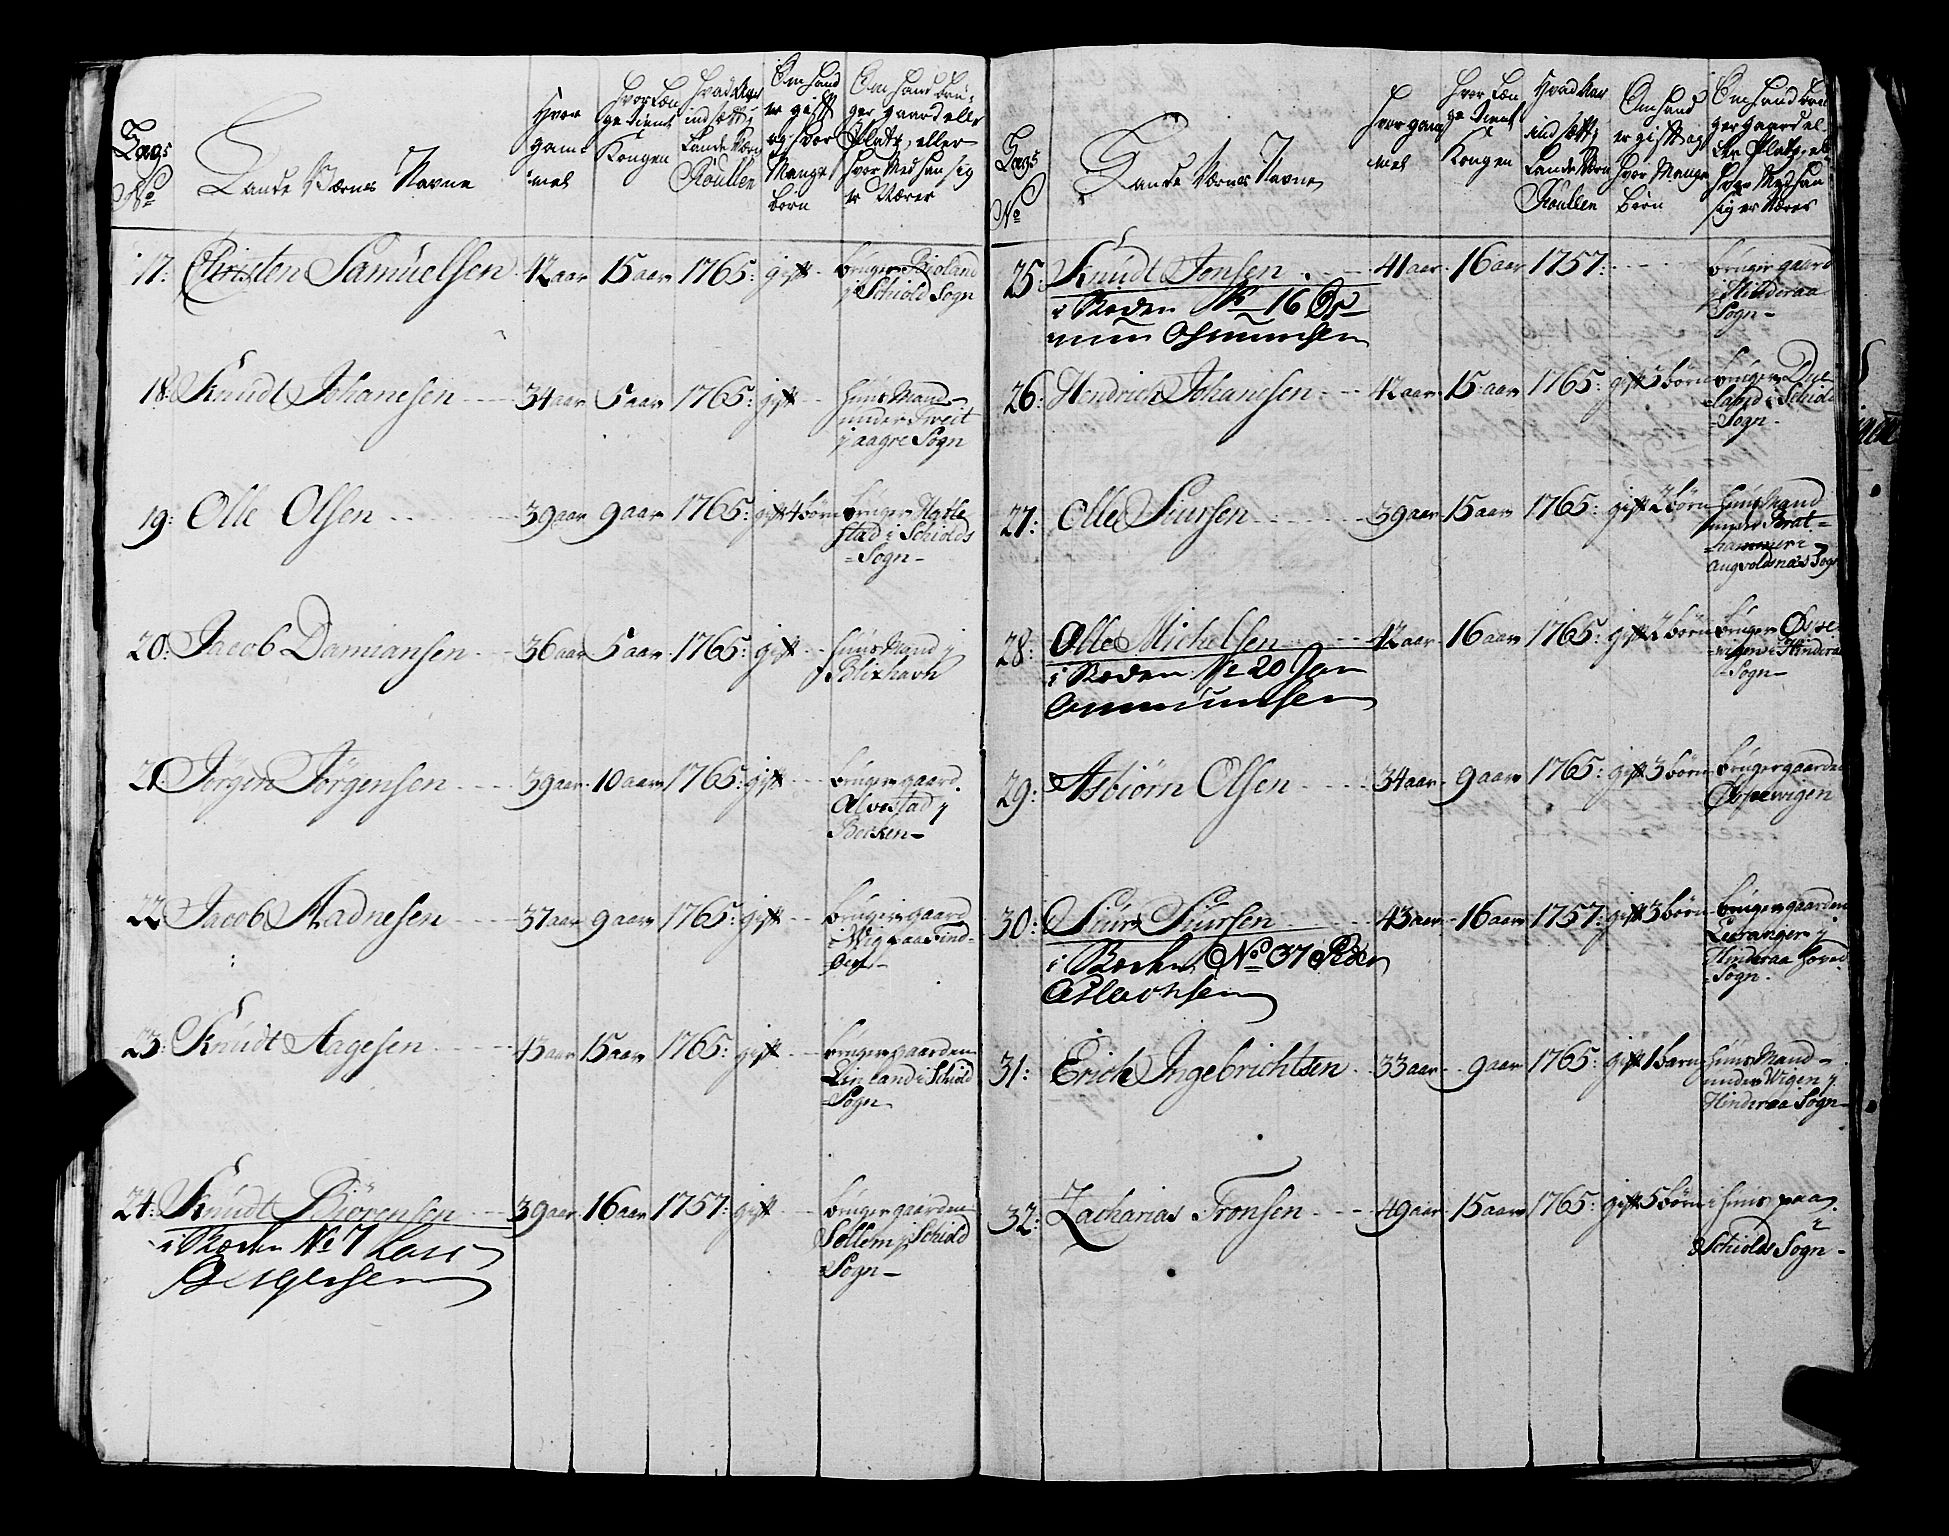 Lags
No
Lande Værnes Navne
Hvor
gam
mel
hvor Læn
ge tient
Kongen
hvad Aar
indsatt i
Lande Værn
Roullen
Om hand
er gift
og hvor
Mange
børn
Om hand bru-
ger gaard eller
Platz, eller
hvor Med han sig
er Nærer
17: Christen Samuelsen 42 aar 15 aar 1765: gift bruger Bioland
i Schiold Sogn
18: Knudt Johanesen 34 aar 5 aar 1765: gift Huus Mand
under Tweit
i aagre Sogn
19: Olle Olsen 39 aar 9 aar 1765: gift 4 børn bruger
stad i Schiolds
Sogn
20: Jacob Damiansen 36 aar 5 aar 1765: gift Huus Mand i
Blixhavn
21 Jørgen Jørgensen 39 aar 10 aar 1765: gift bruger gaard
Alvestad i
Bocken
22 Jacob Aadnesen 37 aar 9 aar 1765: gift bruger gaard
23: Knudt Aagesen 45 aar 15 aar 1765: gift bruger gaarden
Linland i Schiold
Sogn
24: Knudt Biørensen 39 aar 16 aar 1757: gift bruger gaarden
Sellem i Schiold
Sogn
i No 7 Lars
Bergersen
Lags
No
Lande Værnes Navne
hvor gam
mel
hvor Læn
ge tient
Kongen
Hvad Aar
indsatt i
Lande Værn
Roullen
Om hand
er gift og
hvor Mange
børn
Om hand bru
ger gaard el-
ler Platz, el
hvor Med han
sig er Nærer
25: Knudt Jonsen 41 aar 16 aar 1757: bruger gaard
i Hinderaa
Sogn
i Steden No 16 Os-
mun Osmunsen
26: Hendrich Johanesen 42 aar 15 aar 1765: gift 5 børn bruger Due
land i Schiold
Sogn
27: Olle Siursen 39 aar 15 aar 1765: gift 2 børn Huus Mand
under Brat-
hammer i
Augvoldsnæs Sogn
28: Olle Michelsen 42 aar 16 aar 1765: gift 2 børn bruger Øspe
wigen i Hinderaa
Sogn
i Steden No 20 Jon
Ommunsen
29: Asbiørn Olsen 34 aar 9 aar 1765: gift 3 børn bruger gaarden
Øspewigen
30: Siur Siursen 43 aar 16 aar 1757: gift 3 børn bruger gaarden
Leeranger i
Hinderaa hoved
Sogn
i No 37 Peder
Aslachsen
31: Erich Ingebrichtsen 33 aar 9 aar 1765: gift 1 barn Huus Mand
under Wigen i
Hinderaa Sogn
32: Zacharias Tronsen 49 aar 15 aar 1765: gift 5 børn i huus paa
Schiolds Sogn